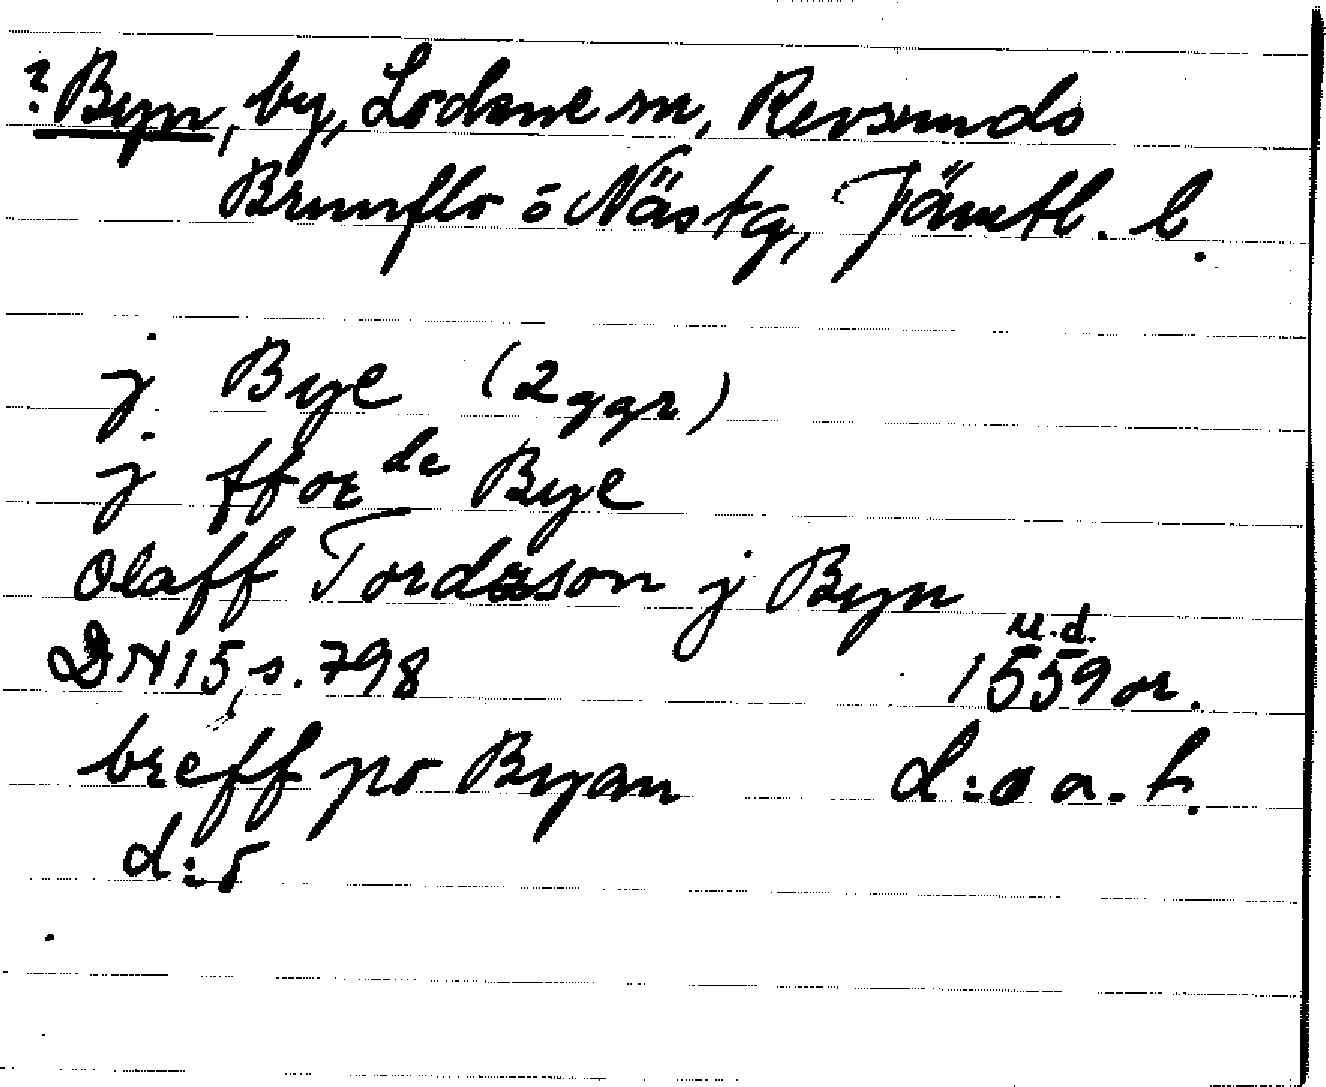 ? Byn, by, Lockne sn, Revsunds
Brunflo o Näs tg, Jämtl. l.
j Bye (2 ggr)
j ffor de Bye
Olaff Tordzson j Byn
u.d.
DN 15, s. 798 1559 or.
breff po Byan d:o a. h.
d:o